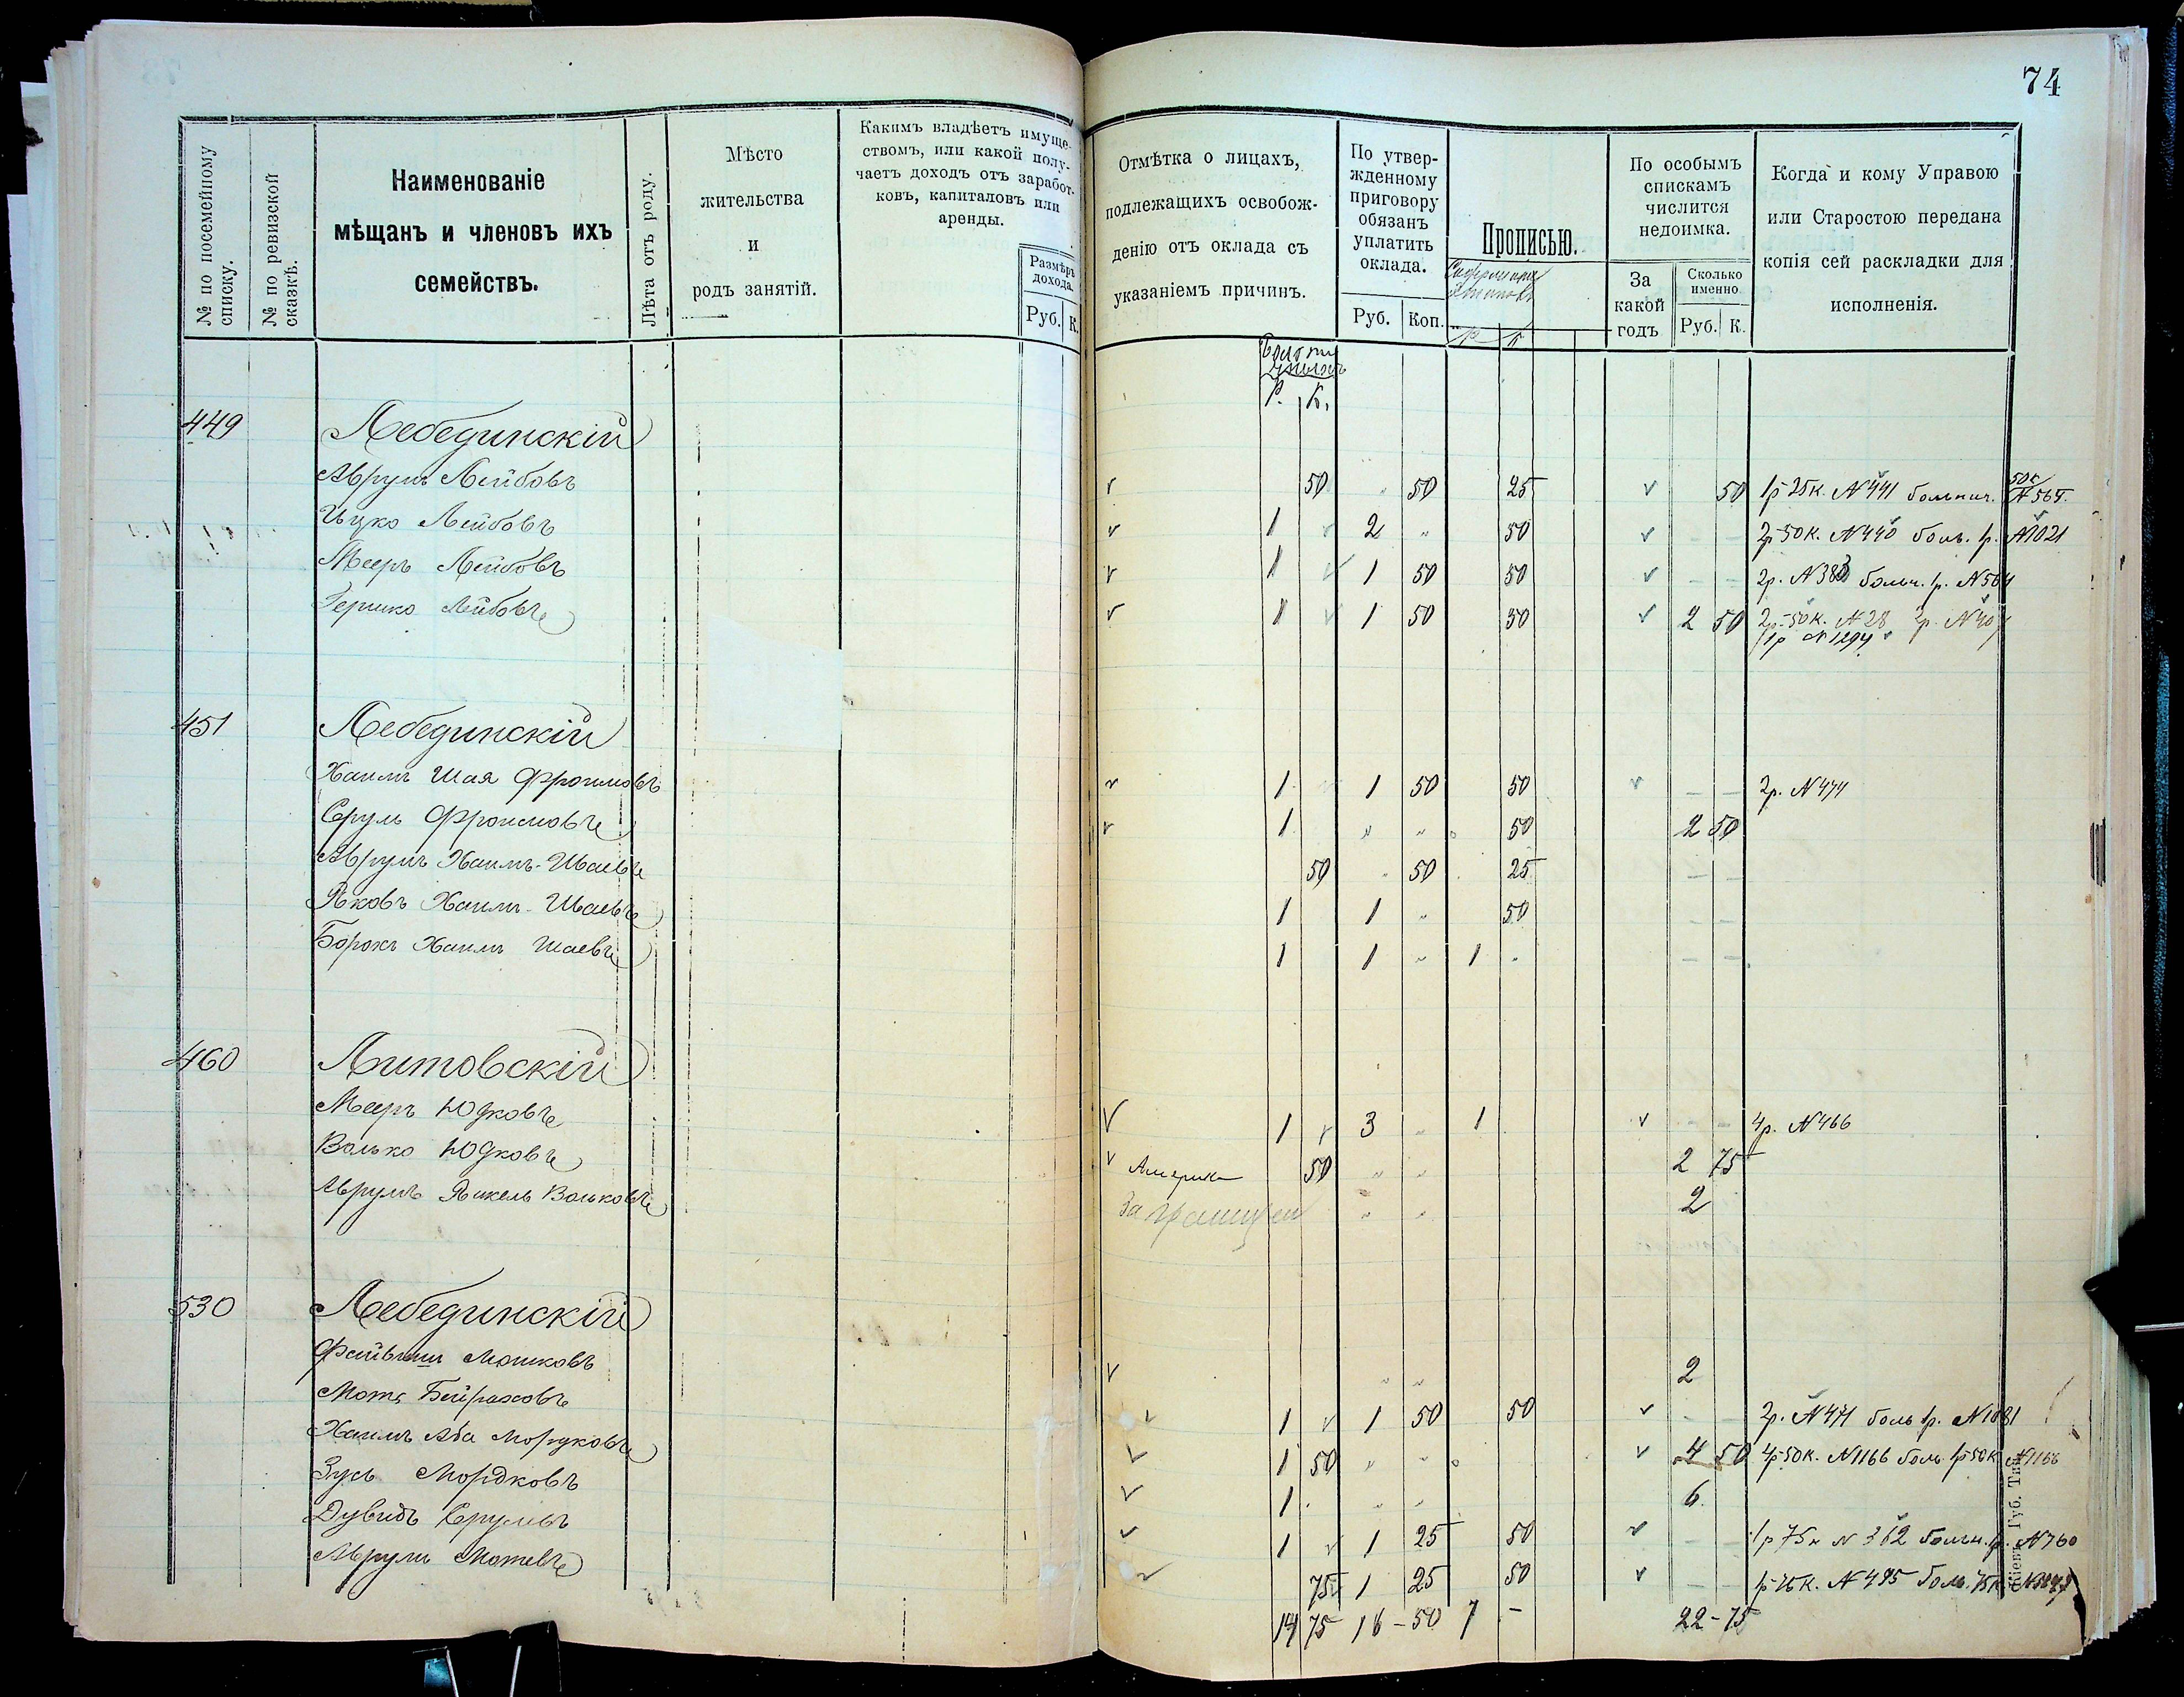 74
№ по посемейному списку.
№ по ревизской сказкѣ.
Наименованіе
мѣщанъ и членовъ ихъ
семействъ.
Лѣта отъ роду.
Мѣсто
жительства
и
родъ занятій.
Какимъ владѣетъ имуще-
ствомъ, или какой полу-
чаетъ доходъ отъ заработ-
ковъ, капиталовъ или
аренды.
Размѣръ
дохода.
Руб. К.
Отмѣтка о лицахъ,
подлежащихъ освобож-
денію отъ оклада съ
указаніемъ причинъ.
По утвер-
жденному
приговору
обязанъ
уплатить
оклада.
Руб. Коп.
Прописью.
р к
По особымъ
спискамъ
числится
недоимка.
За
какой
годъ
Сколько
именно
Руб. К.
Когда и кому Управою
или Старостою передана
копія сей раскладки для
исполненія.
Р. К.
449 Лебединскій
Аврумъ Лейбовъ 50 " 50 25 50 1р 25к. №441 больнич. 50к №564.
Ицко Лейбовъ 1 2 " 50 - - 2р 50к. №440 боль. 1р. №1021
Мееръ Лейбовъ 1 1 50 50 - - 2р. №383 больн. 1р. №564
Гершко Лейбовъ 1 1 50 50 2 50 2р-50к. №28 2р. №407
1р №1294
451 Лебединскій
Хаимъ Шая Фроимовъ 1 1 50 50 - - 2р. №444
Сруль Фроимовъ 1 " " 50 2 50
Аврумъ Хаимъ-Шаевъ 50 " 50 25 - -
Яковъ Хаимъ-Шаевъ 1 1 " 50 - -
Борохъ Хаимъ Шаевъ 1 1 " 1 " - -
460 Литовскій
Мееръ Юдковъ 1 3 " 1 - - 4р. №466
Волько Юдковъ Америка 50 " " 2 75
Аврумъ Янкель Вольковъ За границей " " 2
530 Лебединскій
Файвишъ Мошковъ " " 2
Мотя Бейраховъ 1 1 50 50 - 2р. №471 боль 1р. №1081
Хаимъ Аба Мордковъ 1 50 " " 4 50 4р 50к. №1166 боль. 1р 50к №1166
Зусь Мордковъ 1 " " 6.
Дувидъ Срулевъ 1 1 25 50 - - 1р 75к №362 больн. 1р. №760
Аврумъ Мотевъ 75 1 25 50 - - 1р 75к. №495 боль. 75к.
14 75 16-50 7 - 22-75
Кіевъ. Губ. Тип.